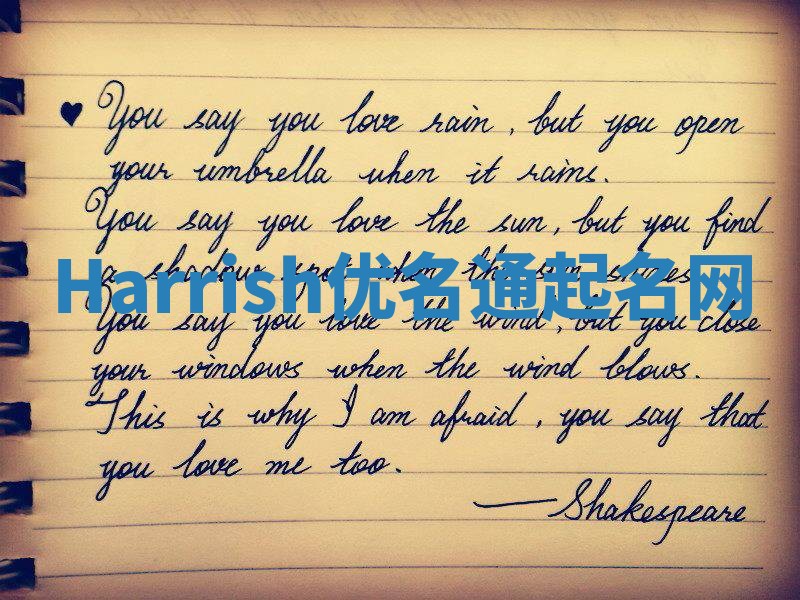 ♥ You say you love rain, but you open
your umbrella when it rains.
You say you love the sun, but you find
a shadow spot when the sun shines.
Harrish优名通起名网
You say you love the wind, but you close
your windows when the wind blows.
This is why I am afraid, you say that
you love me too.
— Shakespeare